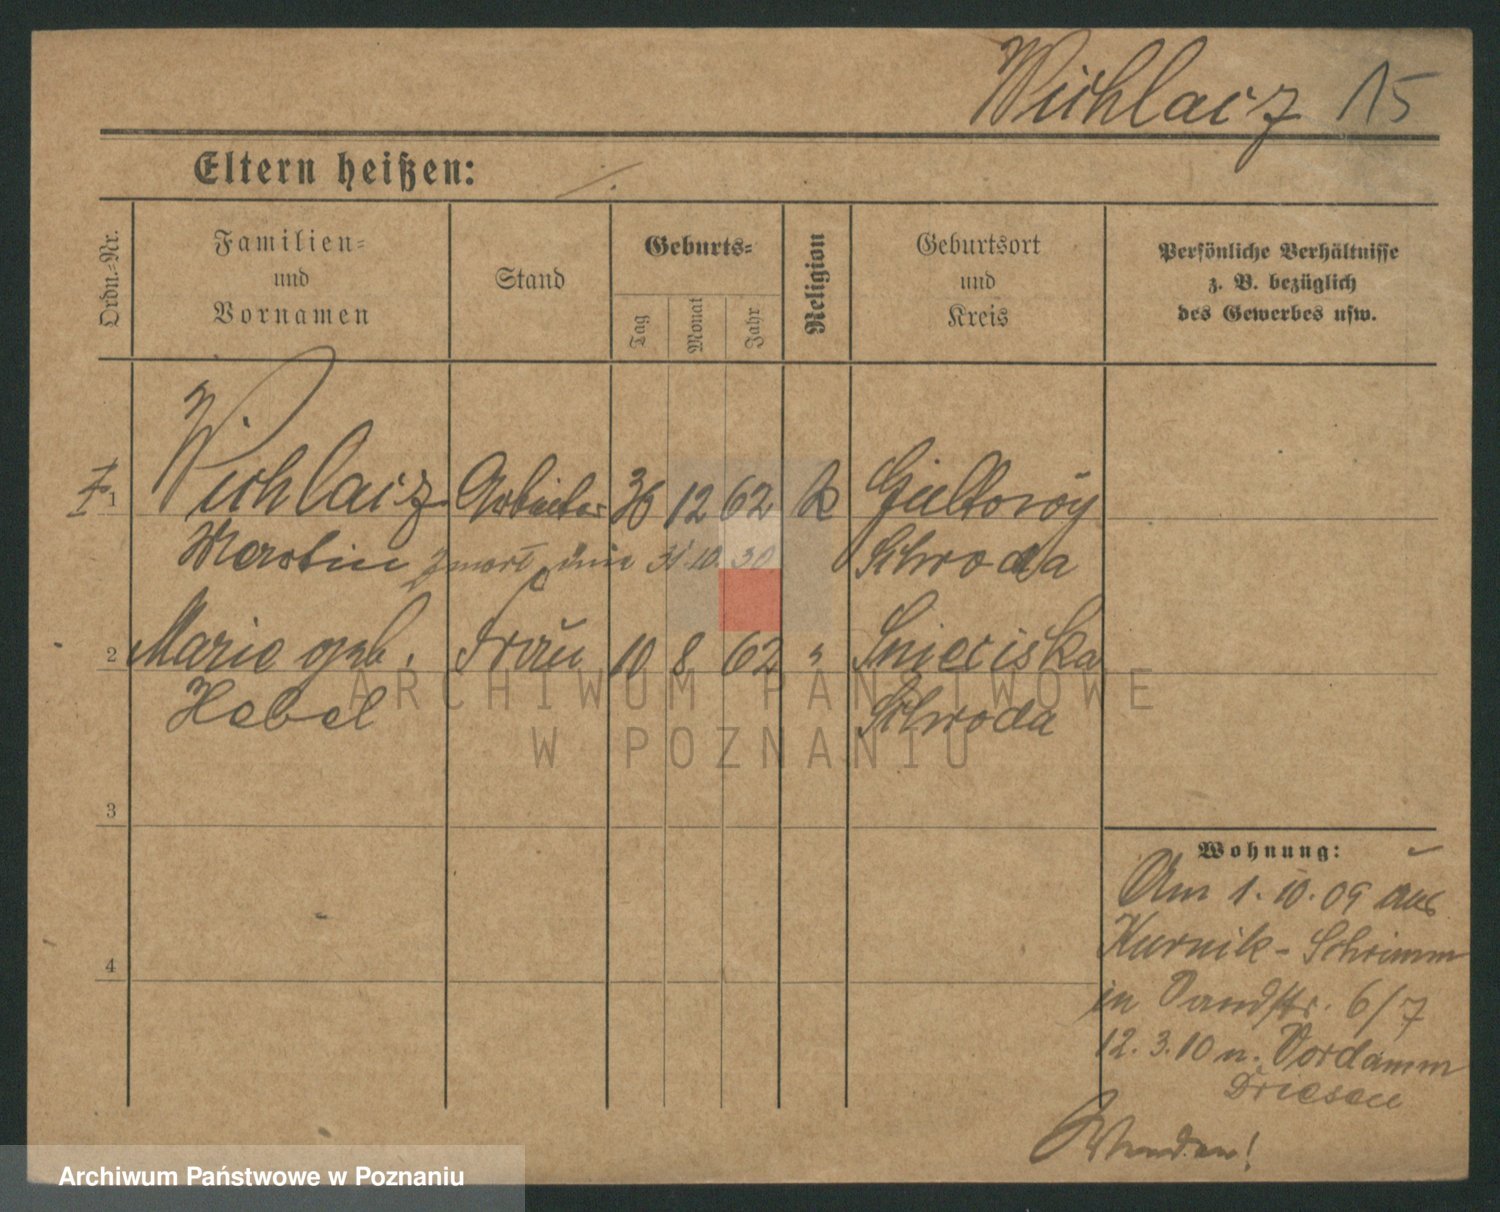 Wichlacz 15
Eltern heißen:
Ordn.-Nr.
Familien-
und
Vornamen
Stand
Geburts-
Tag
Monat
Jahr
Religion
Geburtsort
und
Kreis
Persönliche Verhältnisse
z. B. bezüglich
des Gewerbes usw.
1 Wichlacz Arbeiter 12 62 k
Martin zmarł dnia 31.10.30 Schroda
2 Marie geb. Frau 10 8 62 " Snieciska
Hebel Schroda
3
4
Wohnung:
Am 1.10.09 aus
Kurnik - Schrimm
in Sandstr. 6/7
12.3.10 n. Vordamm
Driesen
Wenden!
ARCHIWUM PAŃSTWOWE
W POZNANIU
Archiwum Państwowe w Poznaniu